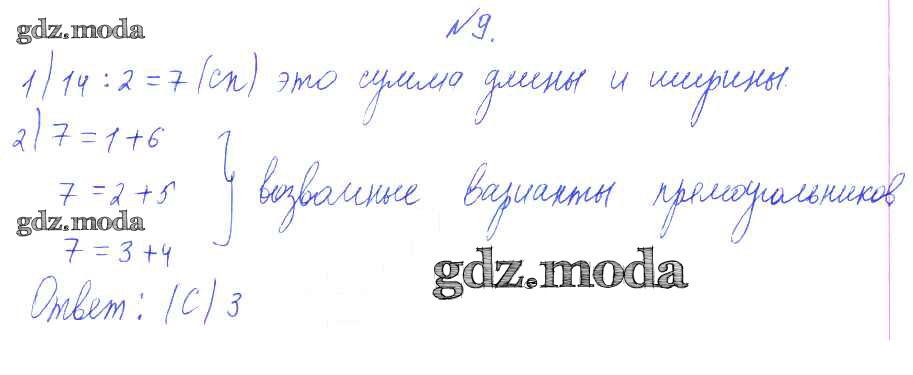 gdz.moda
№9.
1) 14 : 2 = 7 (сп) это сумма длины и ширины.
2) 7 = 1 + 6
7 = 2 + 5 возможные варианты прямоугольников
gdz.moda
7 = 3 + 4
gdz.moda
Ответ: (С) 3